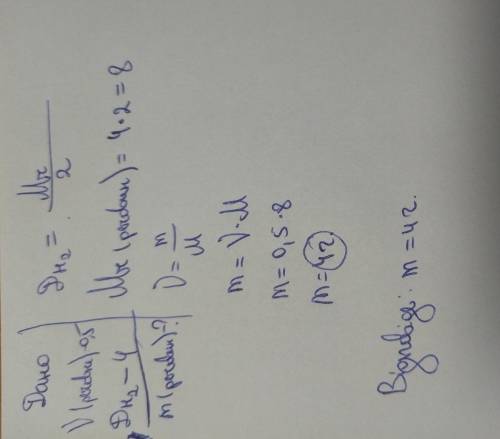 Дано
ν(речовин)-0,5
Dн₂-4
m(речовин)-?
Dн₂ = Mr/2
Mr(речовин) = 4•2=8
ν = m/M
m = ν•M
m = 0,5•8
m = 4г.
Відповідь: m = 4г.